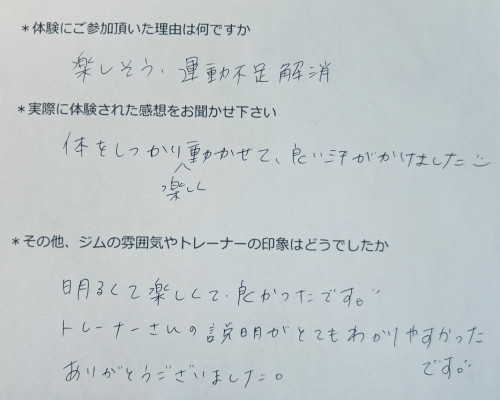 *体験にご参加頂いた理由は何ですか
楽しそう、運動不足解消
*実際に体験された感想をお聞かせ下さい
体をしっかり楽しく動かせて、良い汗がかけました
*その他、ジムの雰囲気やトレーナーの印象はどうでしたか
明るくて楽しくて良かったです。
トレーナーさんの説明がとてもわかりやすかった
です。
ありがとうございました。